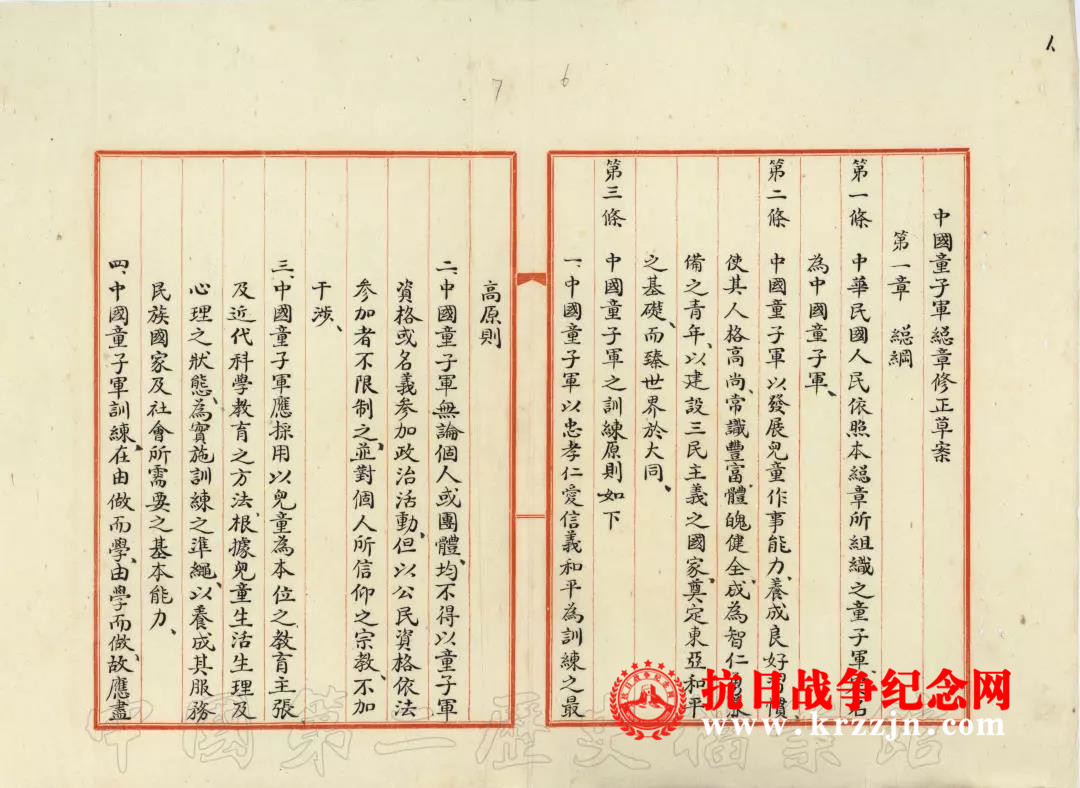 人
7 6
中國童子軍總章修正草案
第一章 總綱
第一條 中華民國人民依照本總章所組織之童子軍、名
為中國童子軍、
第二條 中國童子軍以發展兒童作事能力、養成良好習慣、
使其人格高尚、常識豐富、體魄健全、成為智仁
備之青年、以建設三民主義之國家、奠定東亞和平
之基礎、而臻世界於大同、
第三條 中國童子軍之訓練原則如下
一、中國童子軍以忠孝仁愛信義和平為訓練之最
高原則
二、中國童子軍無論個人或團體、均不得以童子軍
資格或名義參加政治活動、但以公民資格依法
參加者不限制之、並對個人所信仰之宗教、不加
干涉、
三、中國童子軍應採用以兒童為本位之教育主張
及近代科學教育之方法、根據兒童生活生理及
心理之狀態、為實施訓練之準繩、以養成其服務
民族國家及社會所需要之基本能力、
四、中國童子軍訓練、在由做而學、由學而做、故應盡
抗日战争纪念网
www.krzzjn.com
中國第一歷史檔案館